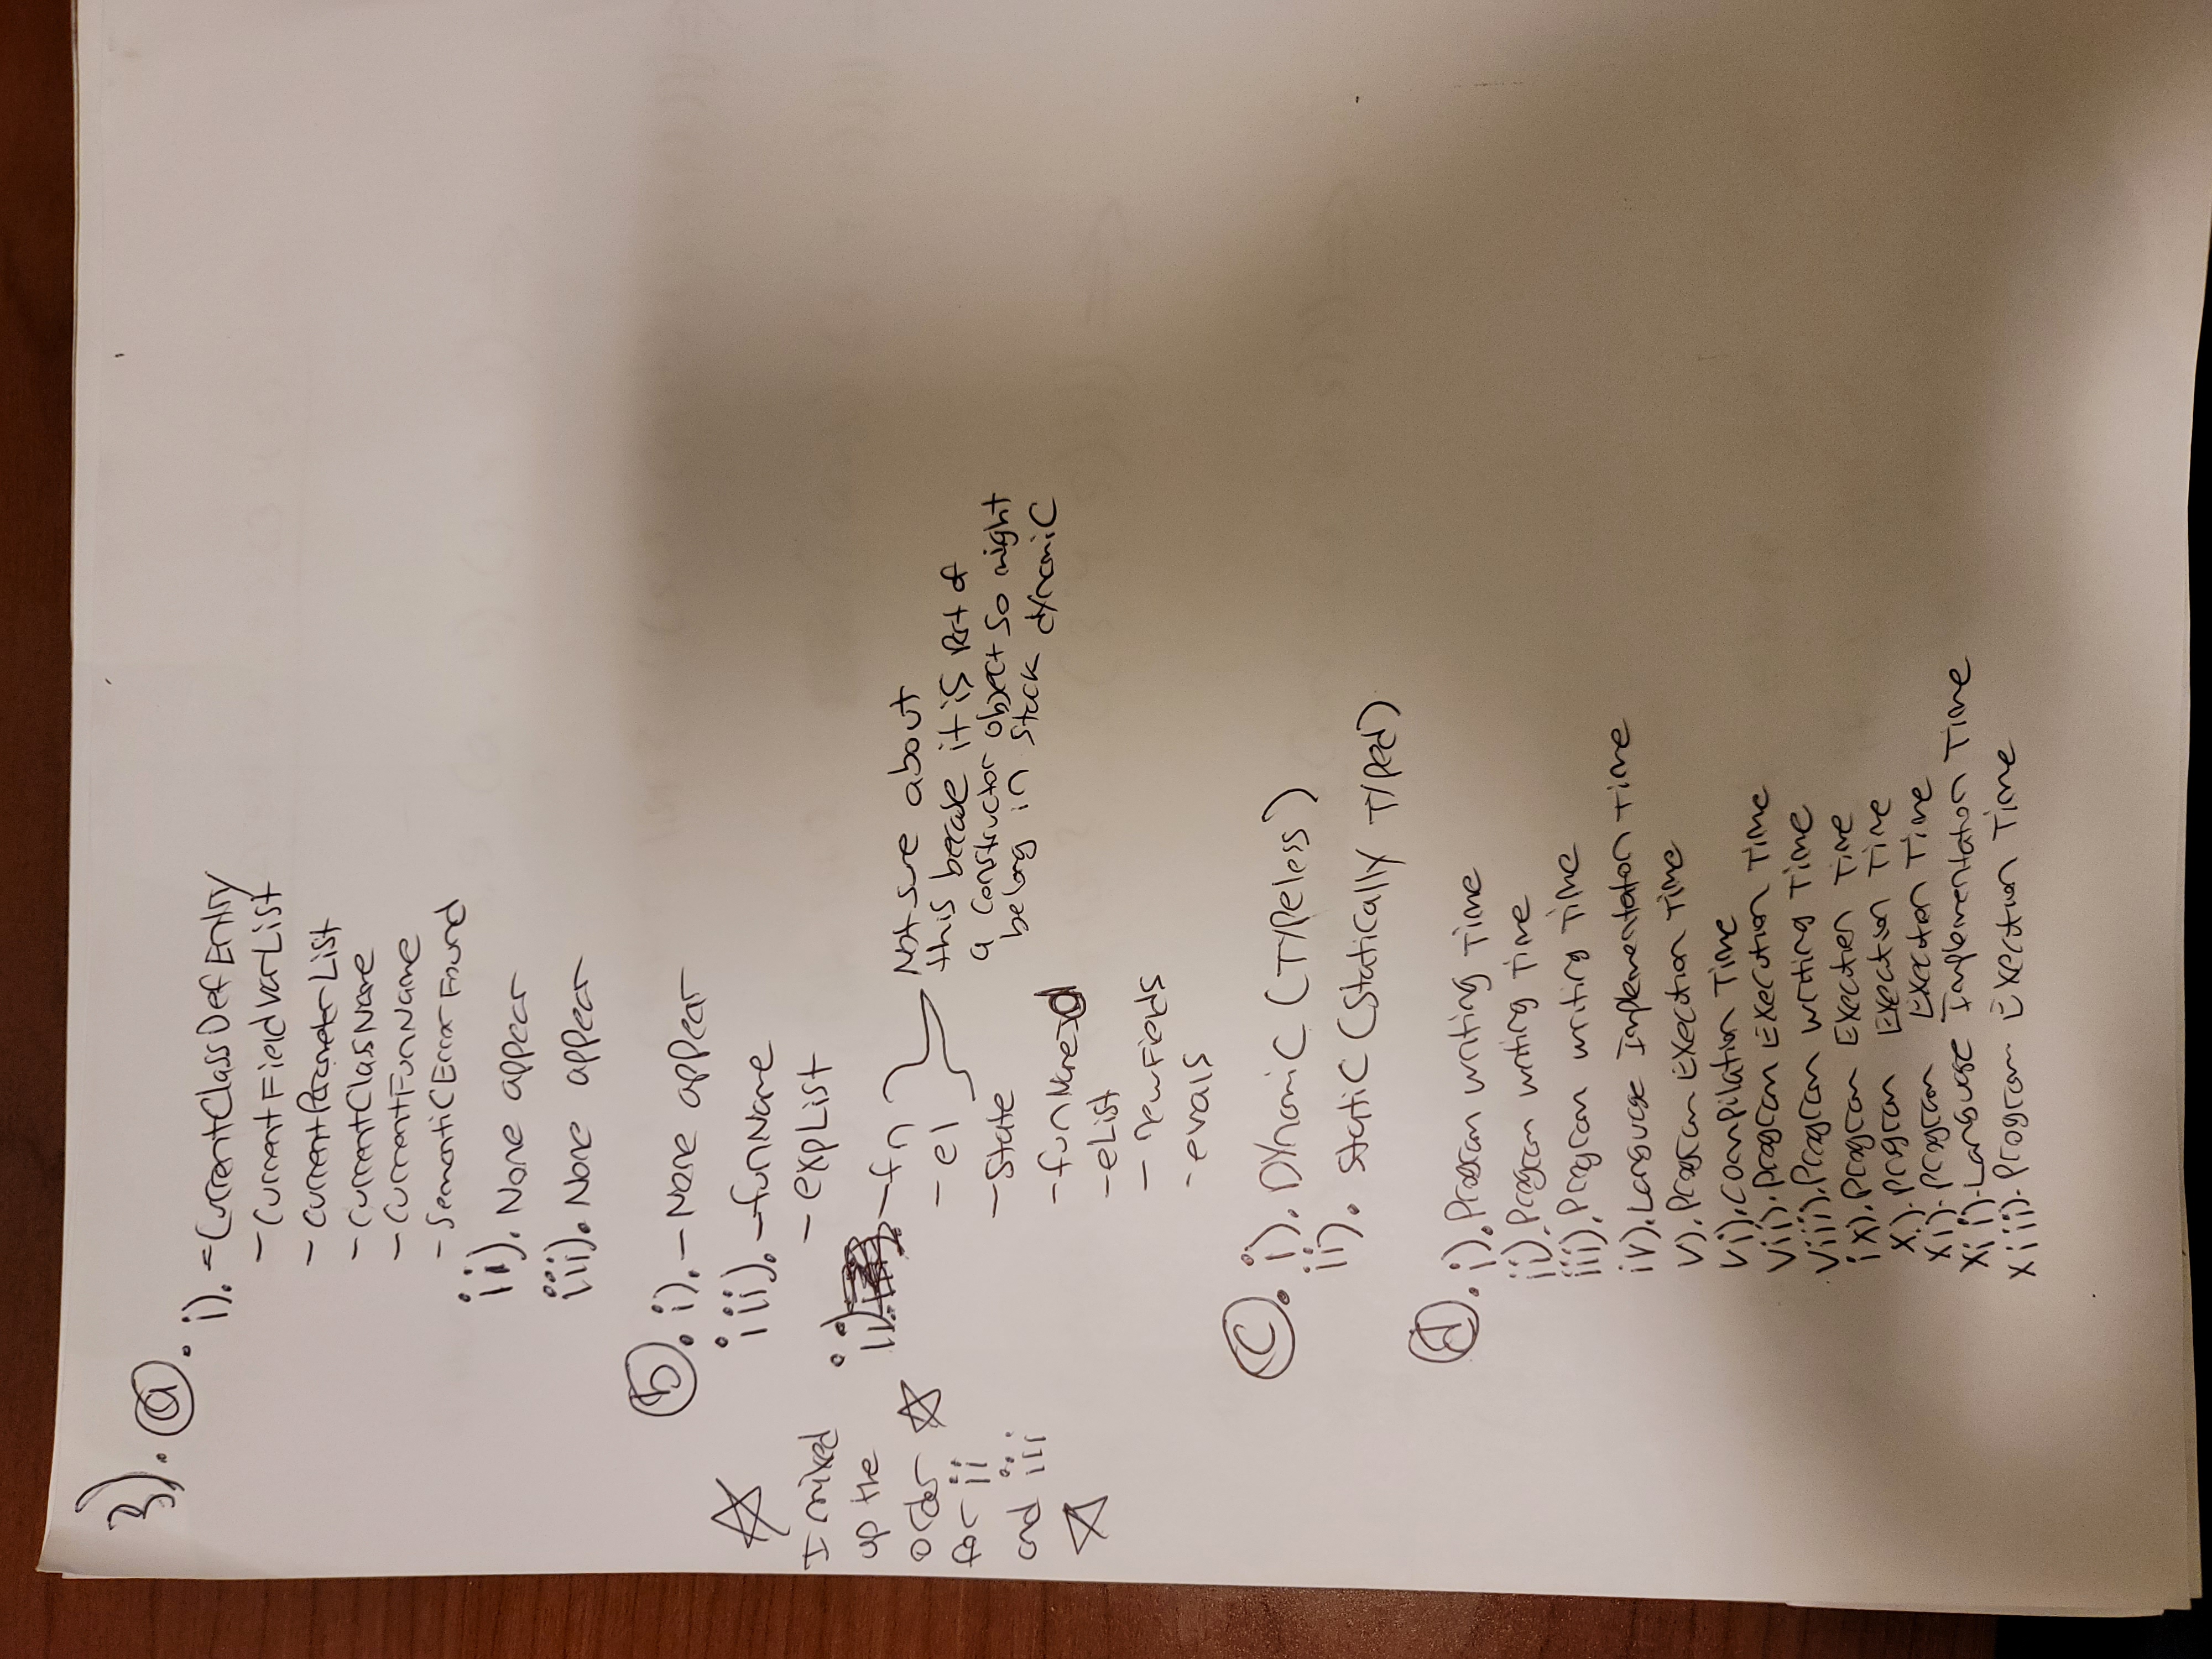 3). a.
i). - CurrentClassDefEntry
- CurrentFieldVarList
- CurrentParameterList
- CurrentClasName
- CurrentFunName
- SemanticErrorFound
ii). None appear
iii). None appear
b. i). - None appear
iii). - funName
- expList
ii). - fn
- el
- State
- funNameId
- eList
- newFields
- evals
Not sure about
this becase it is Part of
a constructor object so might
belong in stack dynamic
☆
I mixed
up the
order ☆
for ii
and iii
☆
c. i). Dynamic (Typeless)
ii). Static (Statically Typed)
d. i). Program writing Time
ii). Program writing Time
iii). Program writing Time
iv). Language Implementation Time
v). Program Execution Time
vi). Compilation Time
vii). Program Execution Time
viii). Program writing Time
ix). Program Execution Time
x). Program Execution Time
xi). Program Execution Time
xii). Language Implementation Time
xiii). Program Execution Time